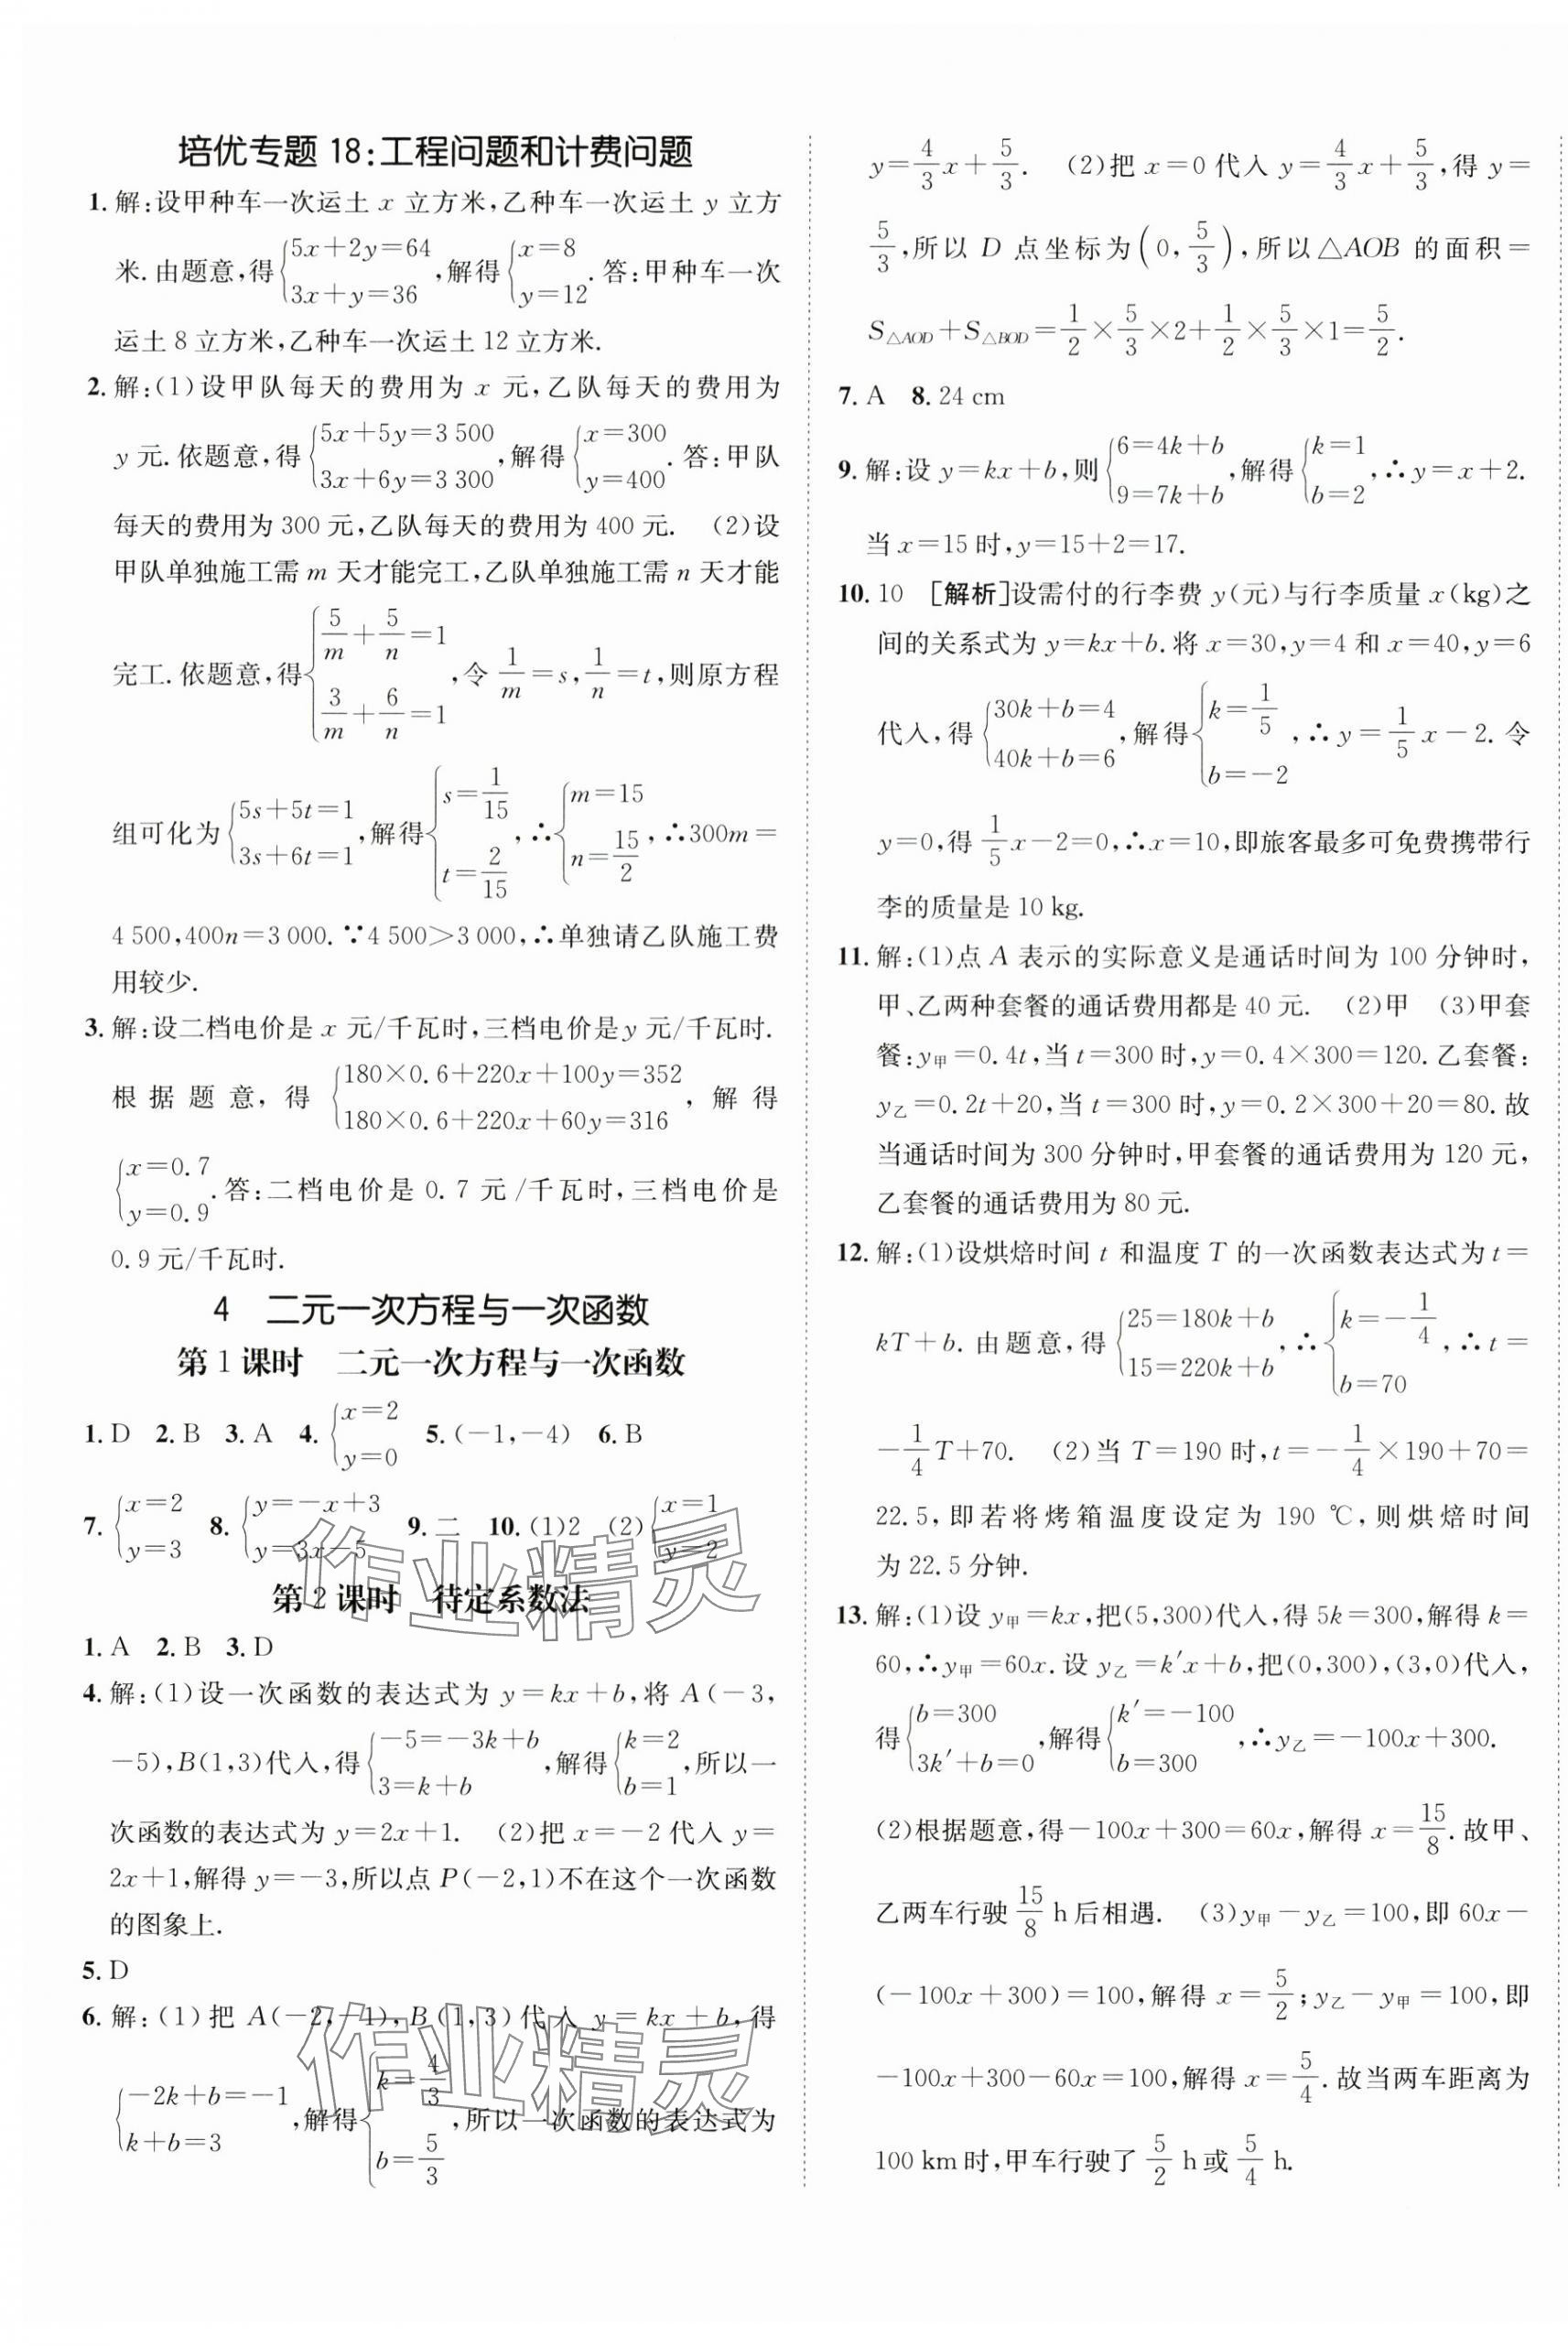 培优专题 18:工程问题和计费问题
1. 解:设甲种车一次运土 x 立方米,乙种车一次运土 y 立方
米.由题意,得{5x+2y=64 3x+y=36,解得{x=8 y=12.答:甲种车一次
运土 8 立方米,乙种车一次运土 12 立方米.
2. 解:(1)设甲队每天的费用为 x 元,乙队每天的费用为
y 元.依题意,得{5x+5y=3 500 3x+6y=3 300,解得{x=300 y=400.答:甲队
每天的费用为 300 元,乙队每天的费用为 400 元. (2)设
甲队单独施工需 m 天才能完工,乙队单独施工需 n 天才能
完工.依题意,得{5/m+5/n=1 3/m+6/n=1,令 1/m=s,1/n=t,则原方程
组可化为{5s+5t=1 3s+6t=1,解得{s=1/15 t=2/15,∴{m=15 n=15/2,∴300m=
4 500,400n=3 000.∵4 500>3 000,∴单独请乙队施工费
用较少.
3. 解:设二档电价是 x 元/千瓦时,三档电价是 y 元/千瓦时.
根据题意,得{180×0.6+220x+100y=352 180×0.6+220x+60y=316,解得
{x=0.7 y=0.9.答:二档电价是 0.7 元/千瓦时,三档电价是
0.9 元/千瓦时.
4 二元一次方程与一次函数
第 1 课时 二元一次方程与一次函数
1. D 2. B 3. A 4. {x=2 y=0 5. (-1,-4) 6. B
7. {x=2 y=3 8. {y=-x+3 y=3x-5 9. 二 10. (1)2 (2){x=1 y=2
第 2 课时 待定系数法
1. A 2. B 3. D
4. 解:(1)设一次函数的表达式为 y=kx+b,将 A(-3,
-5),B(1,3)代入,得{-5=-3k+b 3=k+b,解得{k=2 b=1,所以一
次函数的表达式为 y=2x+1. (2)把 x=-2 代入 y=
2x+1,解得 y=-3,所以点 P(-2,1)不在这个一次函数
的图象上.
5. D
6. 解:(1)把 A(-2,-1),B(1,3)代入 y=kx+b,得
{-2k+b=-1 k+b=3,解得{k=4/3 b=5/3,所以一次函数的表达式为
y=4/3x+5/3. (2)把 x=0 代入 y=4/3x+5/3,得 y=
5/3,所以 D 点坐标为(0,5/3),所以△AOB 的面积=
S△AOD+S△BOD=1/2×5/3×2+1/2×5/3×1=5/2.
7. A 8. 24 cm
9. 解:设 y=kx+b,则{6=4k+b 9=7k+b,解得{k=1 b=2,∴y=x+2.
当 x=15 时,y=15+2=17.
10. 10 [解析]设需付的行李费 y(元)与行李质量 x(kg)之
间的关系式为 y=kx+b.将 x=30,y=4 和 x=40,y=6
代入,得{30k+b=4 40k+b=6,解得{k=1/5 b=-2,∴y=1/5x-2.令
y=0,得 1/5x-2=0,∴x=10,即旅客最多可免费携带行
李的质量是 10 kg.
11. 解:(1)点 A 表示的实际意义是通话时间为 100 分钟时,
甲、乙两种套餐的通话费用都是 40 元. (2)甲 (3)甲套
餐:y甲=0.4t,当 t=300 时,y=0.4×300=120.乙套餐:
y乙=0.2t+20,当 t=300 时,y=0.2×300+20=80.故
当通话时间为 300 分钟时,甲套餐的通话费用为 120 元,
乙套餐的通话费用为 80 元.
12. 解:(1)设烘焙时间 t 和温度 T 的一次函数表达式为 t=
kT+b.由题意,得{25=180k+b 15=220k+b,∴{k=-1/4 b=70,∴t=
-1/4T+70. (2)当 T=190 时,t=-1/4×190+70=
22.5,即若将烤箱温度设定为 190 ℃,则烘焙时间
为 22.5 分钟.
13. 解:(1)设 y甲=kx,把(5,300)代入,得 5k=300,解得 k=
60,∴y甲=60x.设 y乙=k′x+b,把(0,300),(3,0)代入,
得{b=300 3k′+b=0,解得{k′=-100 b=300,∴y乙=-100x+300.
(2)根据题意,得-100x+300=60x,解得 x=15/8.故甲、
乙两车行驶 15/8 h 后相遇. (3)y甲-y乙=100,即 60x-
(-100x+300)=100,解得 x=5/2;y乙-y甲=100,即
-100x+300-60x=100,解得 x=5/4.故当两车距离为
100 km 时,甲车行驶了 5/2 h 或 5/4 h.
作业精灵
作业精灵